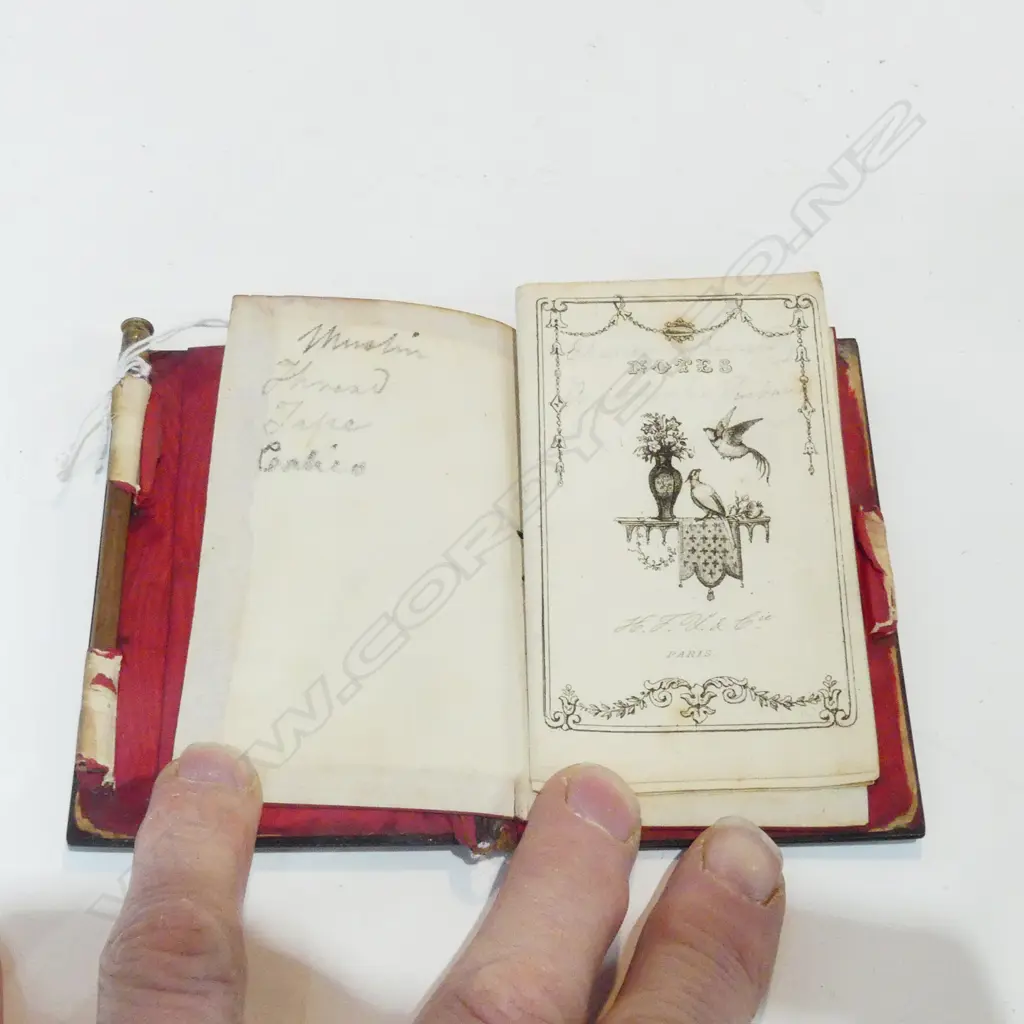 Muslin
Thread
Tape
Calico
NOTES
H. F. & Cie
PARIS
WWW.CORDYS.CO.NZ